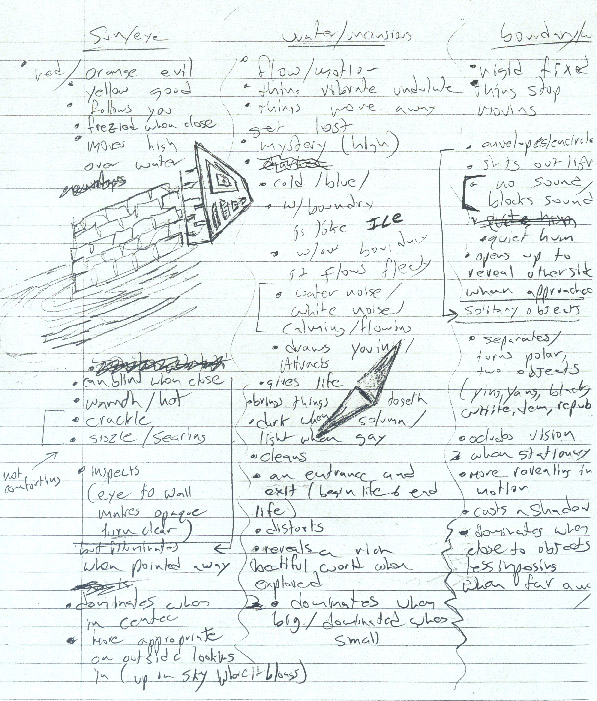 Sun/eye
red/orange evil
• yellow good
• follows you
• frezied when close
• moves high
over water
• can blind when close
• warmth/hot
• crackle
• sizzle/searing
not comforting
• inspects
(eye to wall
makes opaque
turn clear)
but illuminates
when pointed away
• dominates when
in center
• More appropriate
on outside looking
in (up in sky where it belongs)
water/
• flow/motion
• things vibrate undulate
• things move away
get lost
• mystery (high)
• cold/blue/
• w/boundry
is like ICE
• w/out boundary
it flows freely
• water noise/
white noise/
calming/flowing
• draws you in/
Attracts
• gives life
• brings things
• dark when solumn/
light when gay
• cleans
• an entrance and
exit (begin life & end
life)
• distorts
• reveals a rich
beatiful world when
explored
• dominates when
big/dominated when
small
boundary/
• rigid fixed
• things stop
moving
• envelopes/encircle
• no sound/
blocks sound
• quiet hum
• opens up to
reveal otherside
when approached
solitary objects
• separates/
turns polar,
two objects
(ying, yang, black,
white, dem, repub
• occludes vision
when stationary
• more revealing in
motion
• casts a shadow
• dominates when
close to objects
less imposing
when far away